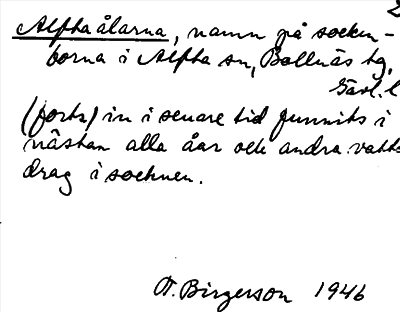 Alftaålarna, namn på socken-
borna i Alfta sn, Bollnäs tg,
Gävl. l
(forts) in i senare tid funnits i
nästan alla åar och andra vatt
drag i socknen.
A. Birgerson 1946